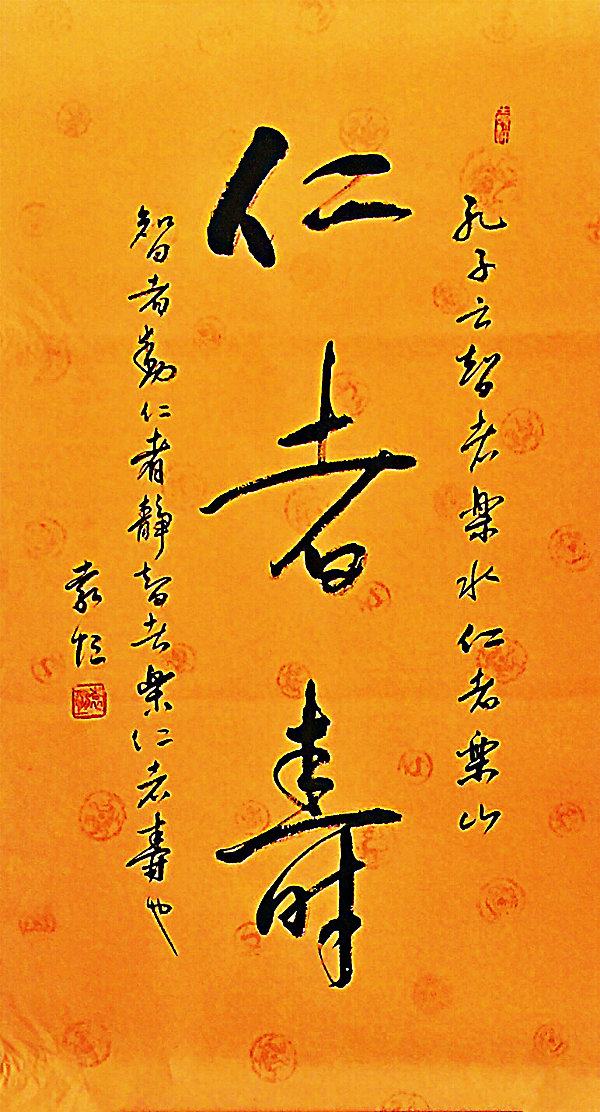 孔子云智者樂水仁者樂山
仁者壽
智者動仁者靜智者樂仁者壽也